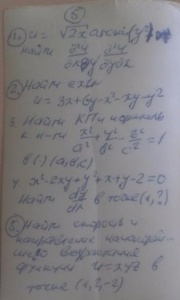 ⑤
1. u = √2x arcsin(y²)
Найти ∂²u ∂²u
∂x∂y ∂y∂x
2. Найти extr
u = 3x+6y-x²-xy-y²
3. Найти КП и нормаль
к п-ти x²/a² + y²/b² - z²/c² = 1
в (·) (a,b,c)
4. x²-2xy+y²+x+y-2=0
Найти в точке (1,?)
5. Найти скорость и
направление наискорей-
шего возрастания
функции u=xyz в
точке (1,2,-2)